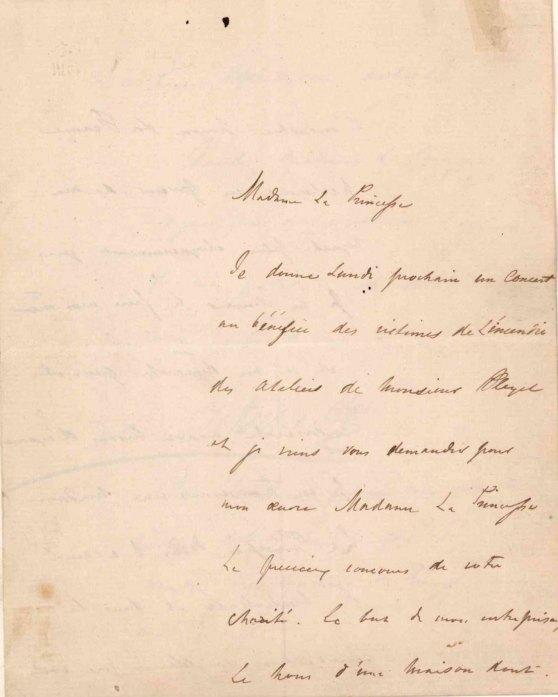 Madame La Princesse
Je donne Lundi prochain un Concert
au bénéfice des victimes de L'incendie
des ateliers de Monsieur Pleyel
et je viens vous demander pour
mon œuvre Madame La Princesse
Le précieux concours de votre
charité. Le but de mon entreprise
Le nom d'une maison dont